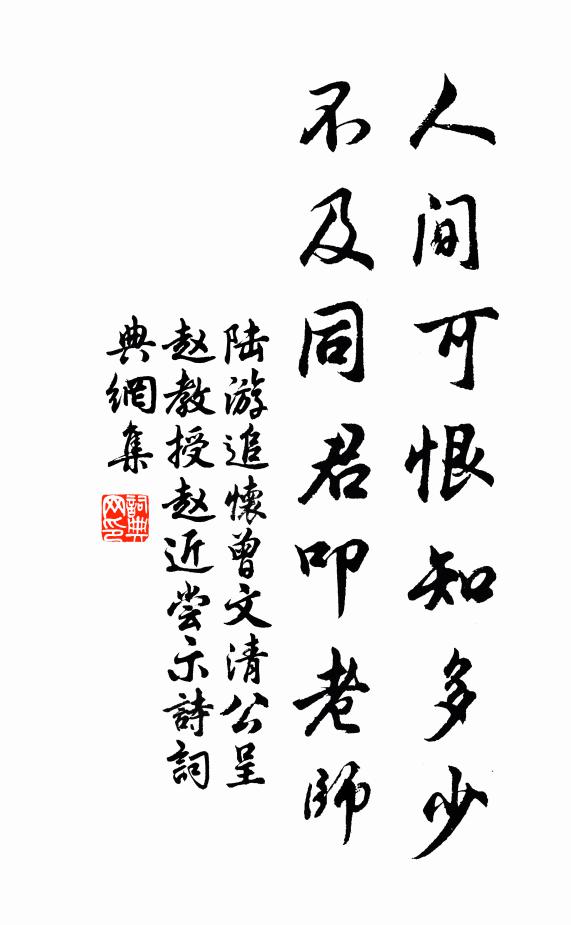 人间可恨知多少
不及同君叩老师
陆游追懷曾文清公呈
赵教授赵近尝示詩詞
典網集
詞典网印